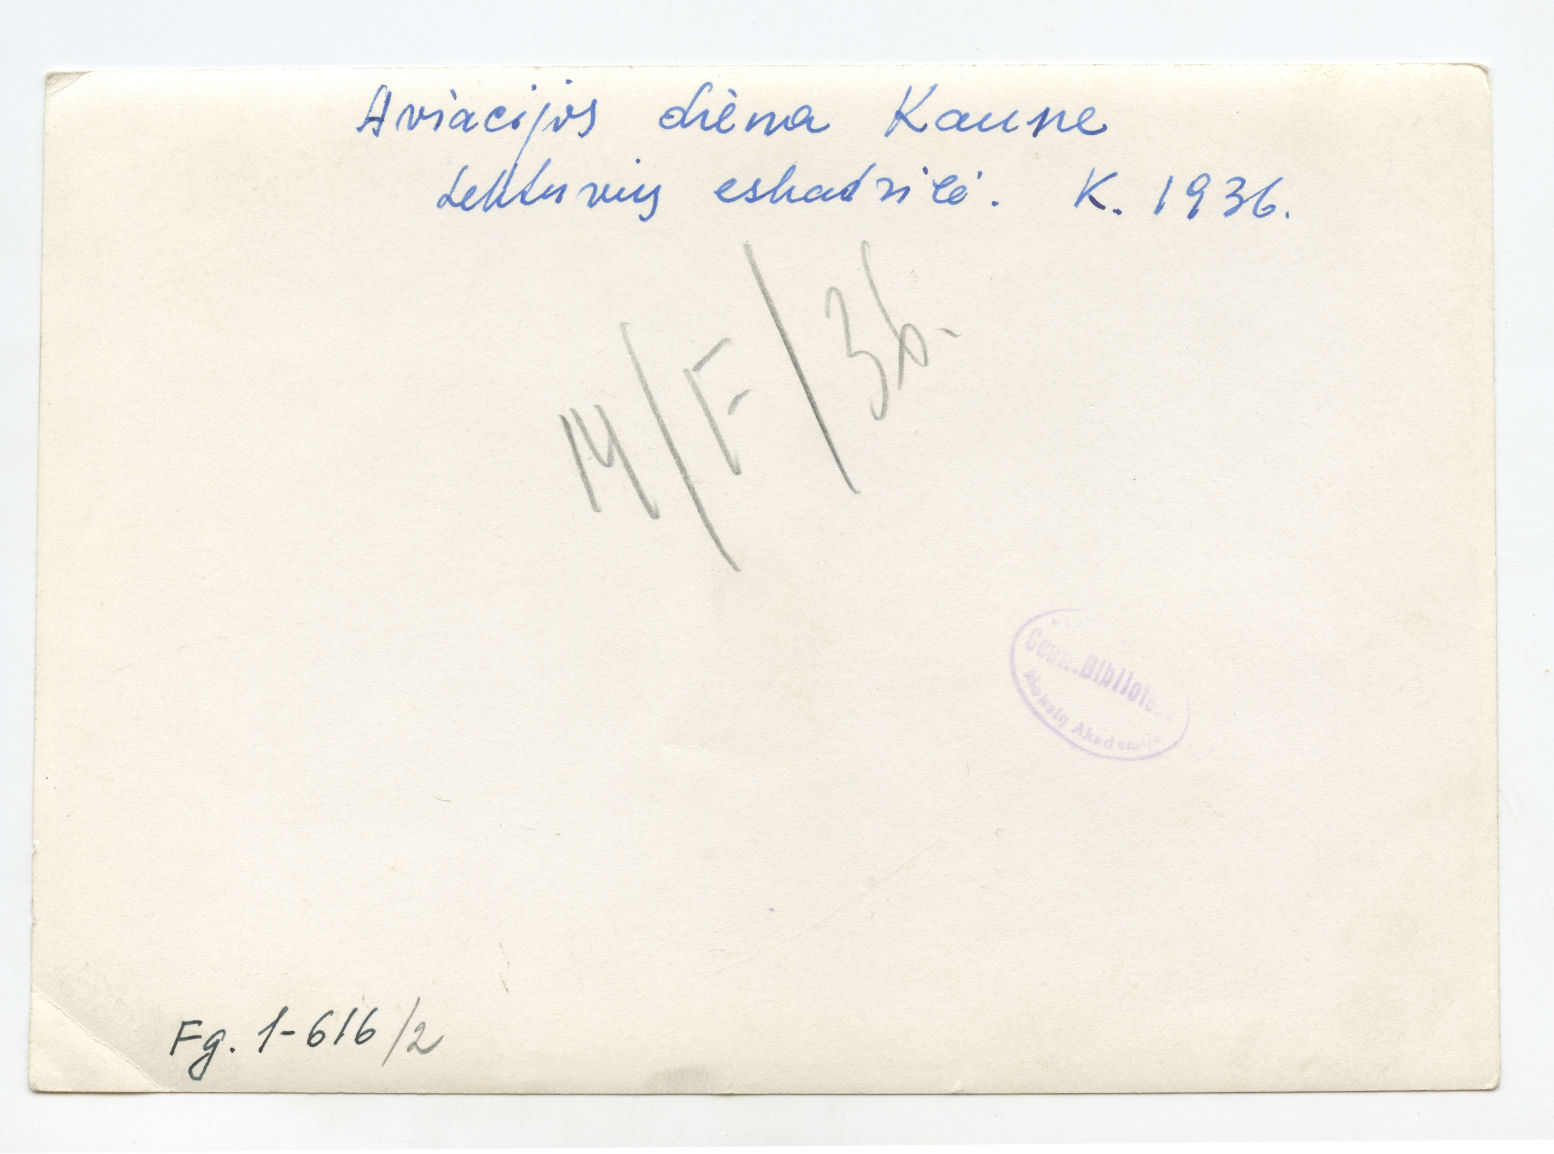 Aviacijos diena Kaune
Lėktuvių eskadrilė. K. 1936.
14/F/36.
Centr. Bibliote
Mokslų Akademija
Fg. 1-616/2